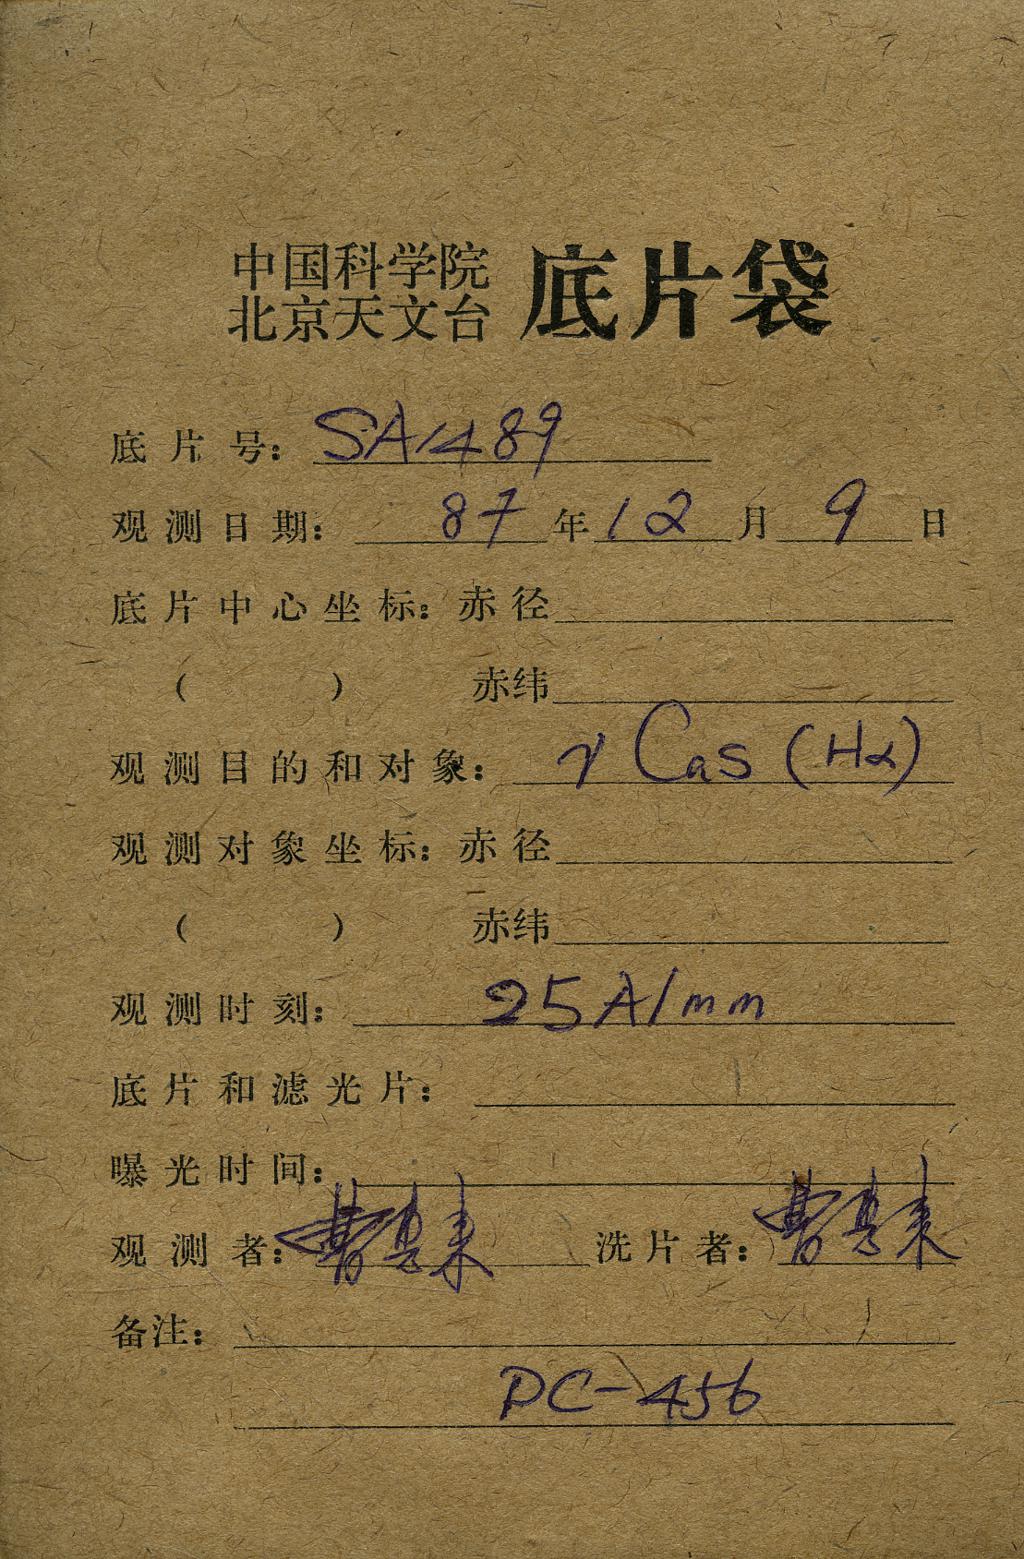 中国科学院
北京天文台 底片袋
底片号: SA1489
观测日期: 87年12月9日
底片中心坐标: 赤径
( ) 赤纬
观测目的和对象: γ Cas (Hα)
观测对象坐标: 赤径
( ) 赤纬
观测时刻: 25A/mm
底片和滤光片:
曝光时间:
观测者: 曹惠来 洗片者: 曹惠来
备注:
PC-456